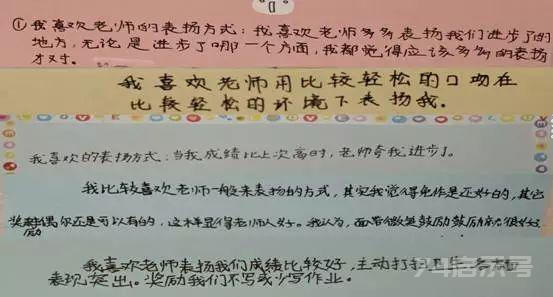 ①我喜欢老师的表扬方式：我喜欢老师多多表扬我们进步了的
地方，无论是进步了哪一个方面，我都觉得应该多多的表扬
才对。
我喜欢老师用比较轻松的口吻在
比较轻松的环境下表扬我。
我喜欢的表扬方式：当我成绩比上次高时，老师夸我进步了。
我比较喜欢老师一般来表扬的方式，其实我觉得免作是还好的，其它
奖励偶尔还是可以有的，这样显得老师人好。我认为，面带微笑鼓励鼓励
我喜欢老师表扬我们成绩比较好，主动打扫卫生各方面
表现突出。奖励我们不写或少写作业。